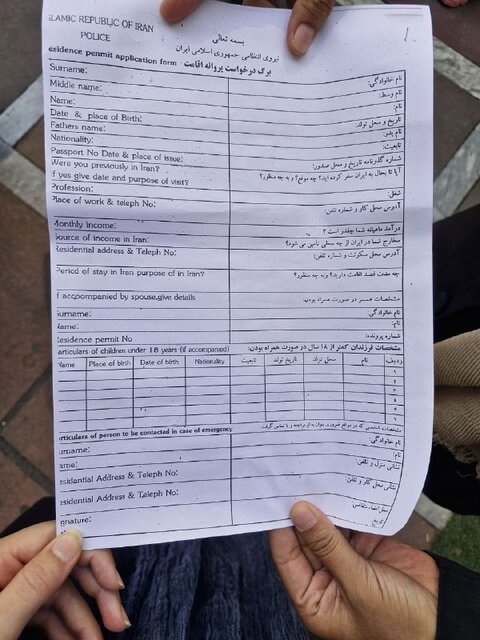 ISLAMIC REPUBLIC OF IRAN
POLICE
بسمه تعالی
نیروی انتظامی جمهوری اسلامی ایران
esidence pemit application form
برگ درخواست پروانه اقامت
Surname:
نام خانوادگی:
Middle name:
نام وسط:
Name:
نام:
Date & place of Birth:
تاریخ و محل تولد:
Fathers name:
نام پدر:
Nationality:
تابعیت:
Passport No Date & place of issue:
شماره گذرنامه تاریخ و محل صدور:
Were you previously in Iran?
آیا تا بحال به ایران سفر کرده اید؟ چه موقع؟ و به چه منظور؟
f yes give date and purpose of visit?
Profession:
شغل:
Place of work & teleph No:
آدرس محل کار و شماره تلفن:
Monthly income:
درآمد ماهیانه شما چقدر است ؟
Source of income in Iran:
مخارج شما در ایران از چه محلی تأمین می شود؟
Residential address & Teleph No:
آدرس محل سکونت و شماره تلفن:
Period of stay in Iran purpose of in Iran?
چه مدت قصد اقامت دارید؟ و به چه منظور؟
f accpomponied by spouse,give details
مشخصات همسر در صورت همراه بودن:
Surname:
نام خانوادگی:
Name:
نام:
Residence permit No
شماره پرونده:
articulars of children under 18 years (if accompanied)
مشخصات فرزندان کمتر از ۱۸ سال در صورت همراه بودن:
Name Place of birth Date of birth Nationality تابعیت تاریخ تولد محل تولد نام ردیف
۱
۲
۳
۴
۵
۶
articulars of person to be contacted in case of emergency
مشخصات شخصی که در مواقع ضروری بتوان به او مراجعه و یا تماس گرفت.
urname:
نام خانوادگی:
ame:
نام:
esidential Address & Teleph No:
نشانی منزل و تلفن:
esidential Address & Teleph No:
نشانی محل کار و تلفن:
gnature:
محل امضاء متقاضی: